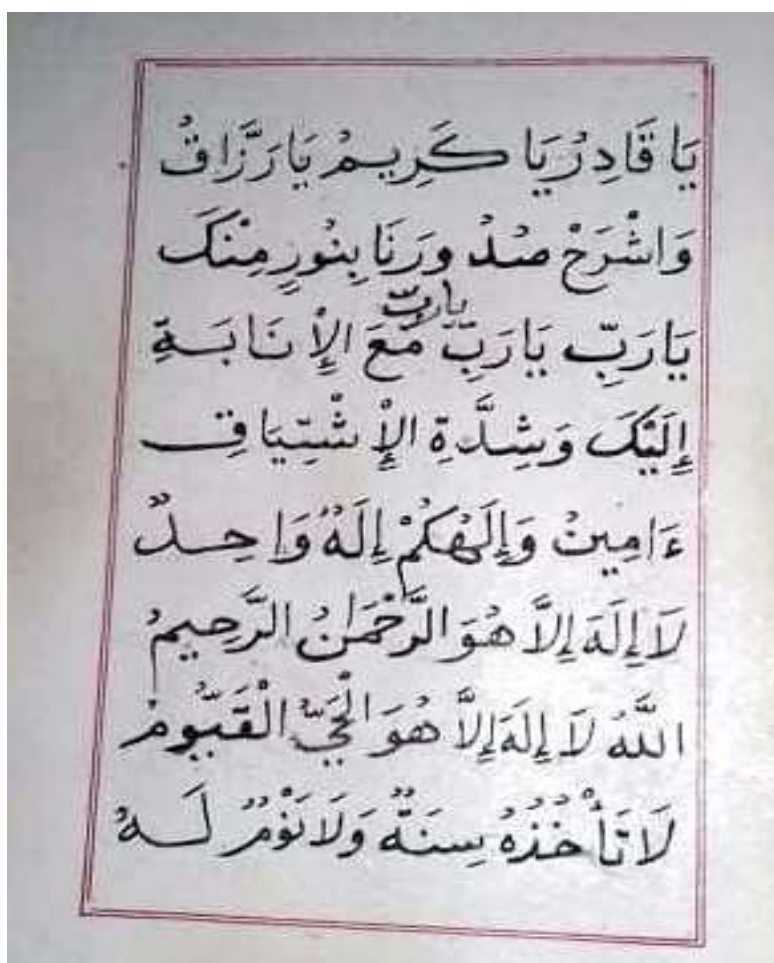 يَا قَادِرُ يَا كَرِيمُ يَا رَزَّاقُ
وَاشْرَحْ صُدُورَنَا بِنُورٍ مِنْكَ
يَارَبّ
يَارَبِّ يَارَبِّ مَعَ الْإِنَابَةِ
إِلَيْكَ وَشِدَّةِ الْإِشْتِيَاقِ
ءَامِينْ وَإِلَهُكُمْ إِلَهٌ وَاحِدٌ
لَا إِلَهَ إِلَّا هُوَ الرَّحْمَانُ الرَّحِيمُ
اللَّهُ لَا إِلَهَ إِلَّا هُوَ الْحَيُّ الْقَيُّومُ
لَا تَأْخُذُهُ سِنَةٌ وَلَا نَوْمٌ لَهُ